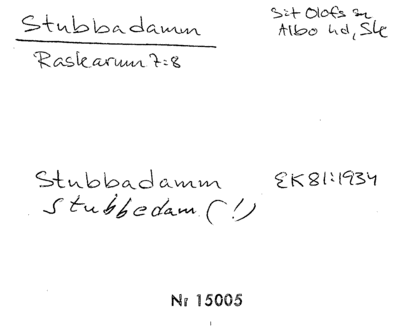 Stubbadamm
S:t Olofs sn
Albo hd, Ske
Raskarum 7:8
Stubbadamm EK 81:1934
Stubbedam (!)
Nr 15005